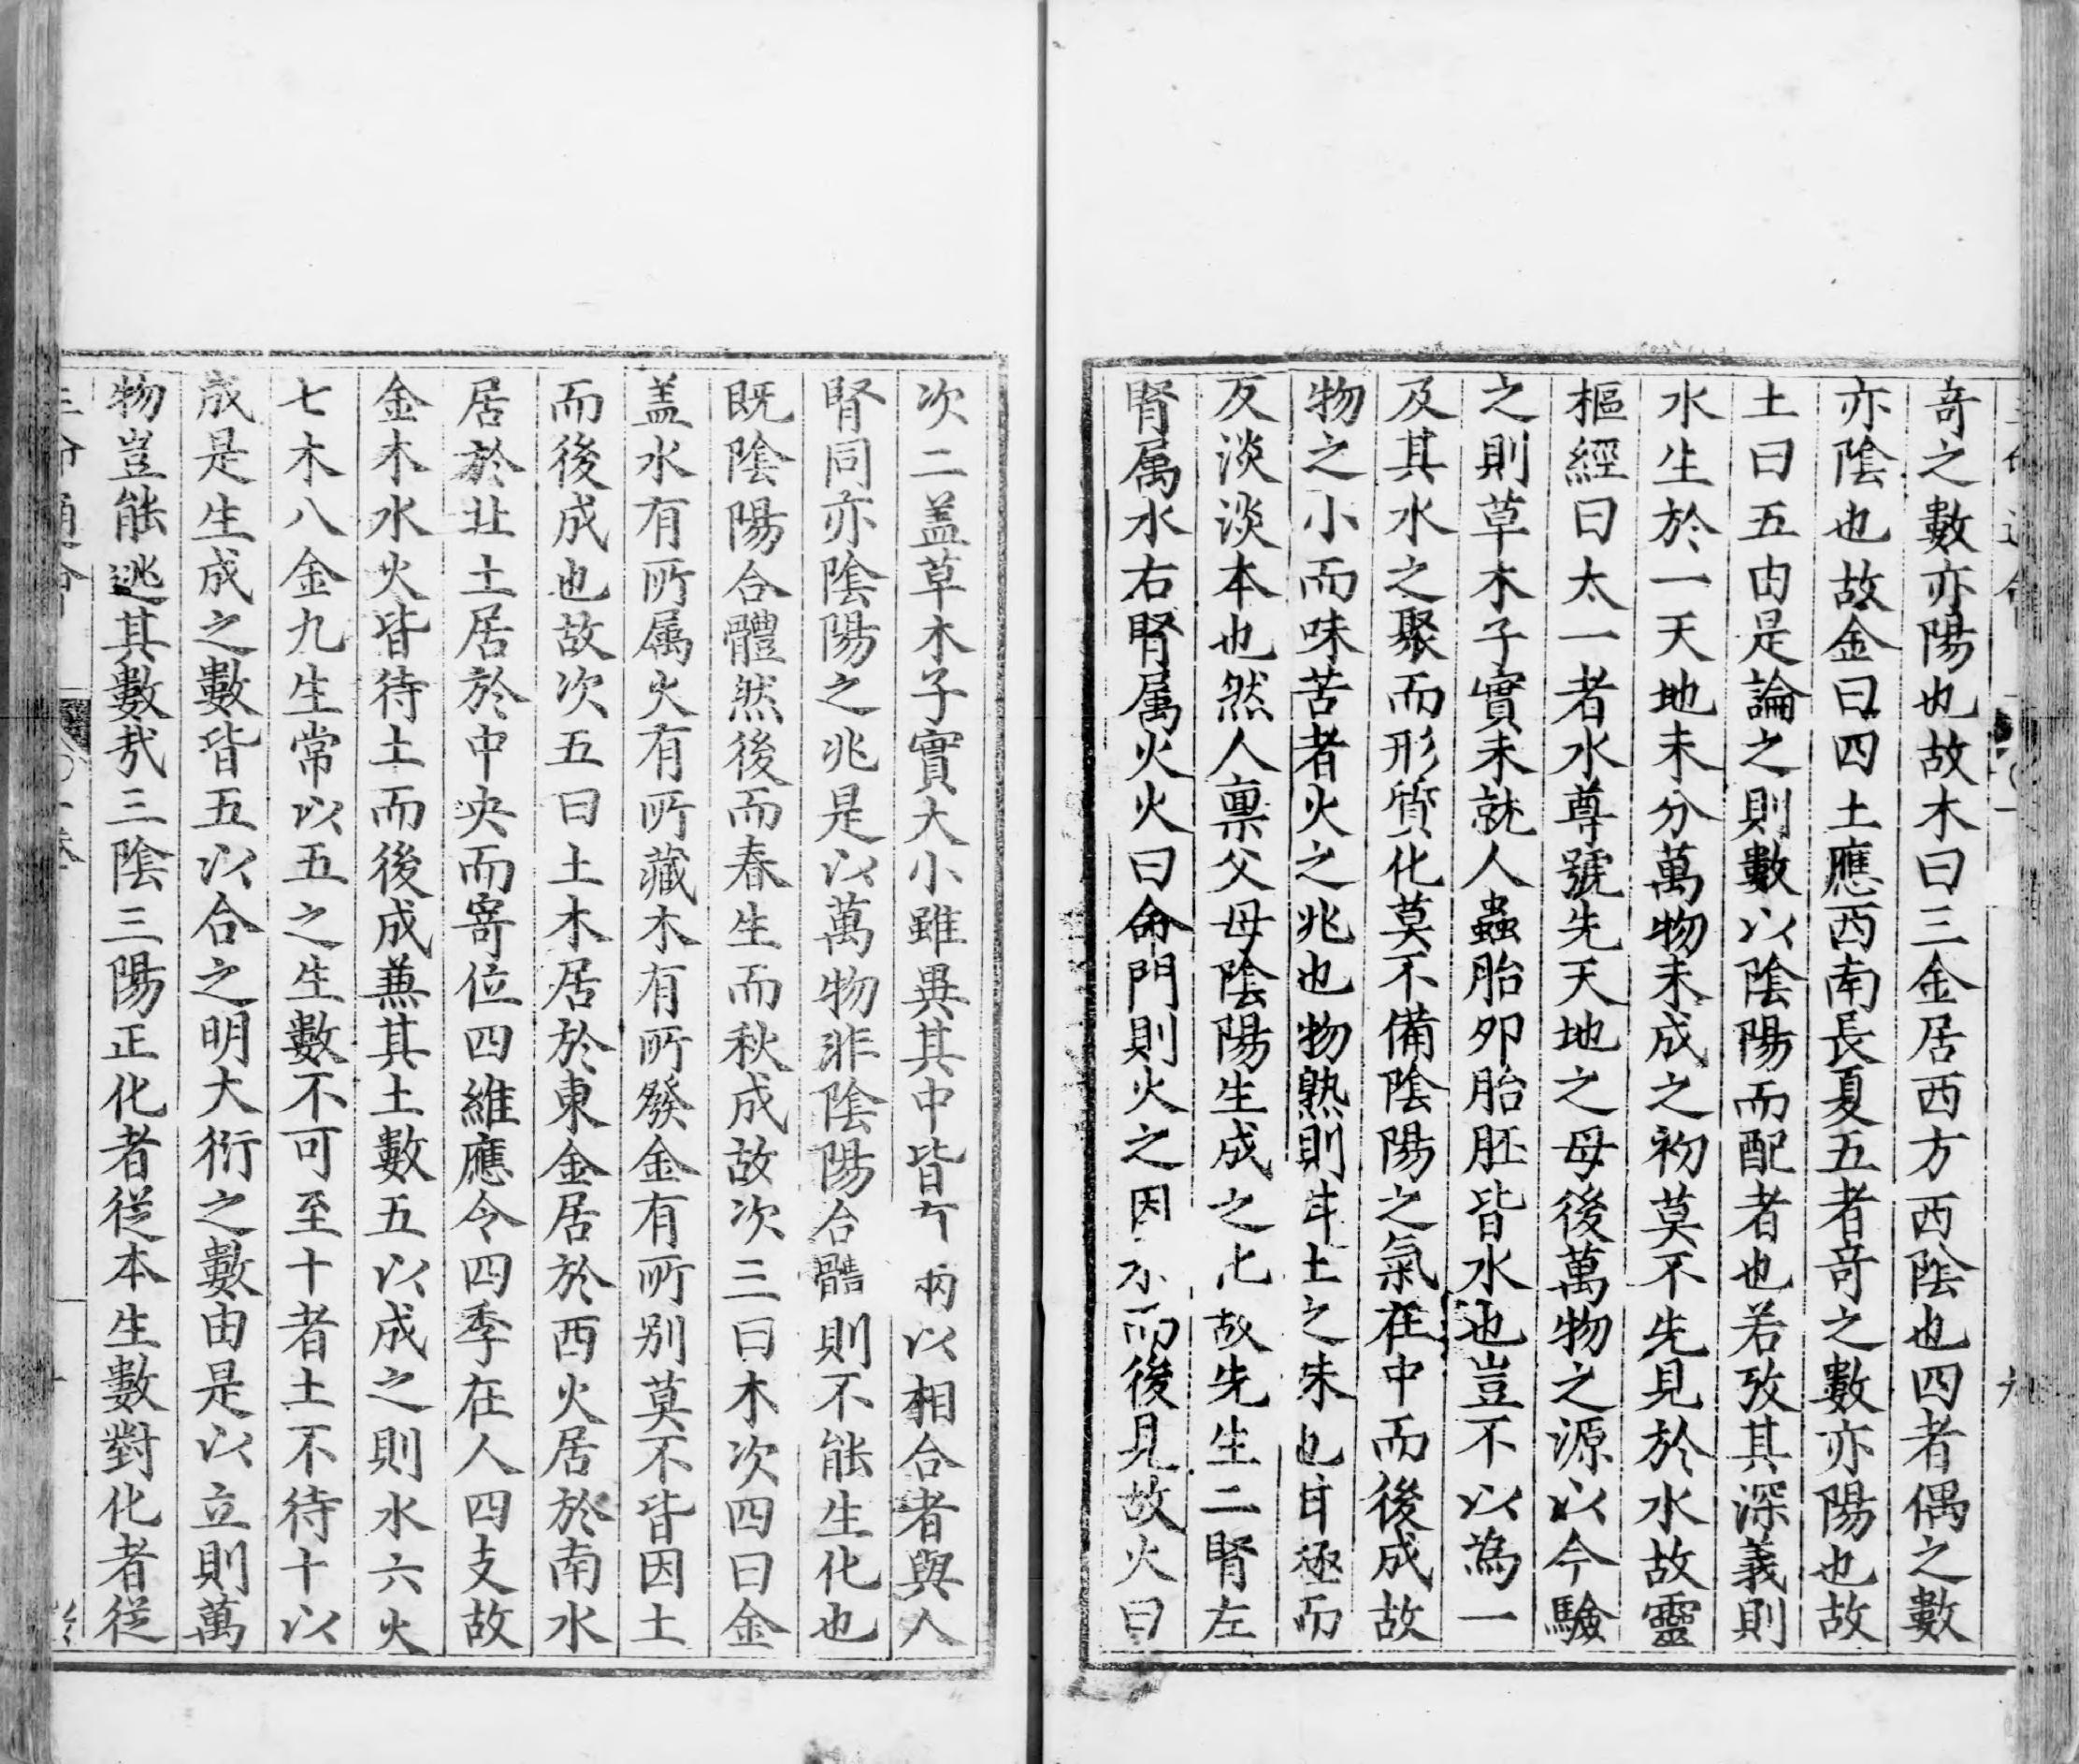 竒之數亦陽也故木曰三金居西方西陰也四者偶之數
亦陰也故金曰四土應西南長夏五者竒之數亦陽也故
土曰五由是論之則數以陰陽而配者也若攷其深義則
水生於一天地未分萬物未成之初莫不先見於水故靈
樞經曰太一者水尊號先天地之母後萬物之源以今驗
之則草木子實未就人蟲胎卵胎胚皆水也豈不以為一
及其水之聚而形質化莫不備陰陽之氣在中而後成故
物之小而味苦者火之兆也物熟則甘土之味也甘極而
反淡淡本也然人禀父母陰陽生成之化故先生二腎左
腎属水右腎属火火曰命門則火之因水而後見故火曰
次二盖草木子實大小雖異其中皆有兩以相合者與人
腎同亦陰陽之兆是以萬物非陰陽合體則不能生化也
既陰陽合體然後而春生而秋成故次三曰木次四曰金
盖水有所属火有所藏木有所發金有所别莫不皆因土
而後成也故次五曰土木居於東金居於西火居於南水
居於北土居於中央而寄位四維應令四季在人四支故
金木水火皆待土而後成兼其土數五以成之則水六火
七木八金九生常以五之生數不可至十者土不待十以
成是生成之數皆五以合之明大衍之數由是以立則萬
物豈能逃其數㢤三陰三陽正化者從本生數對化者從